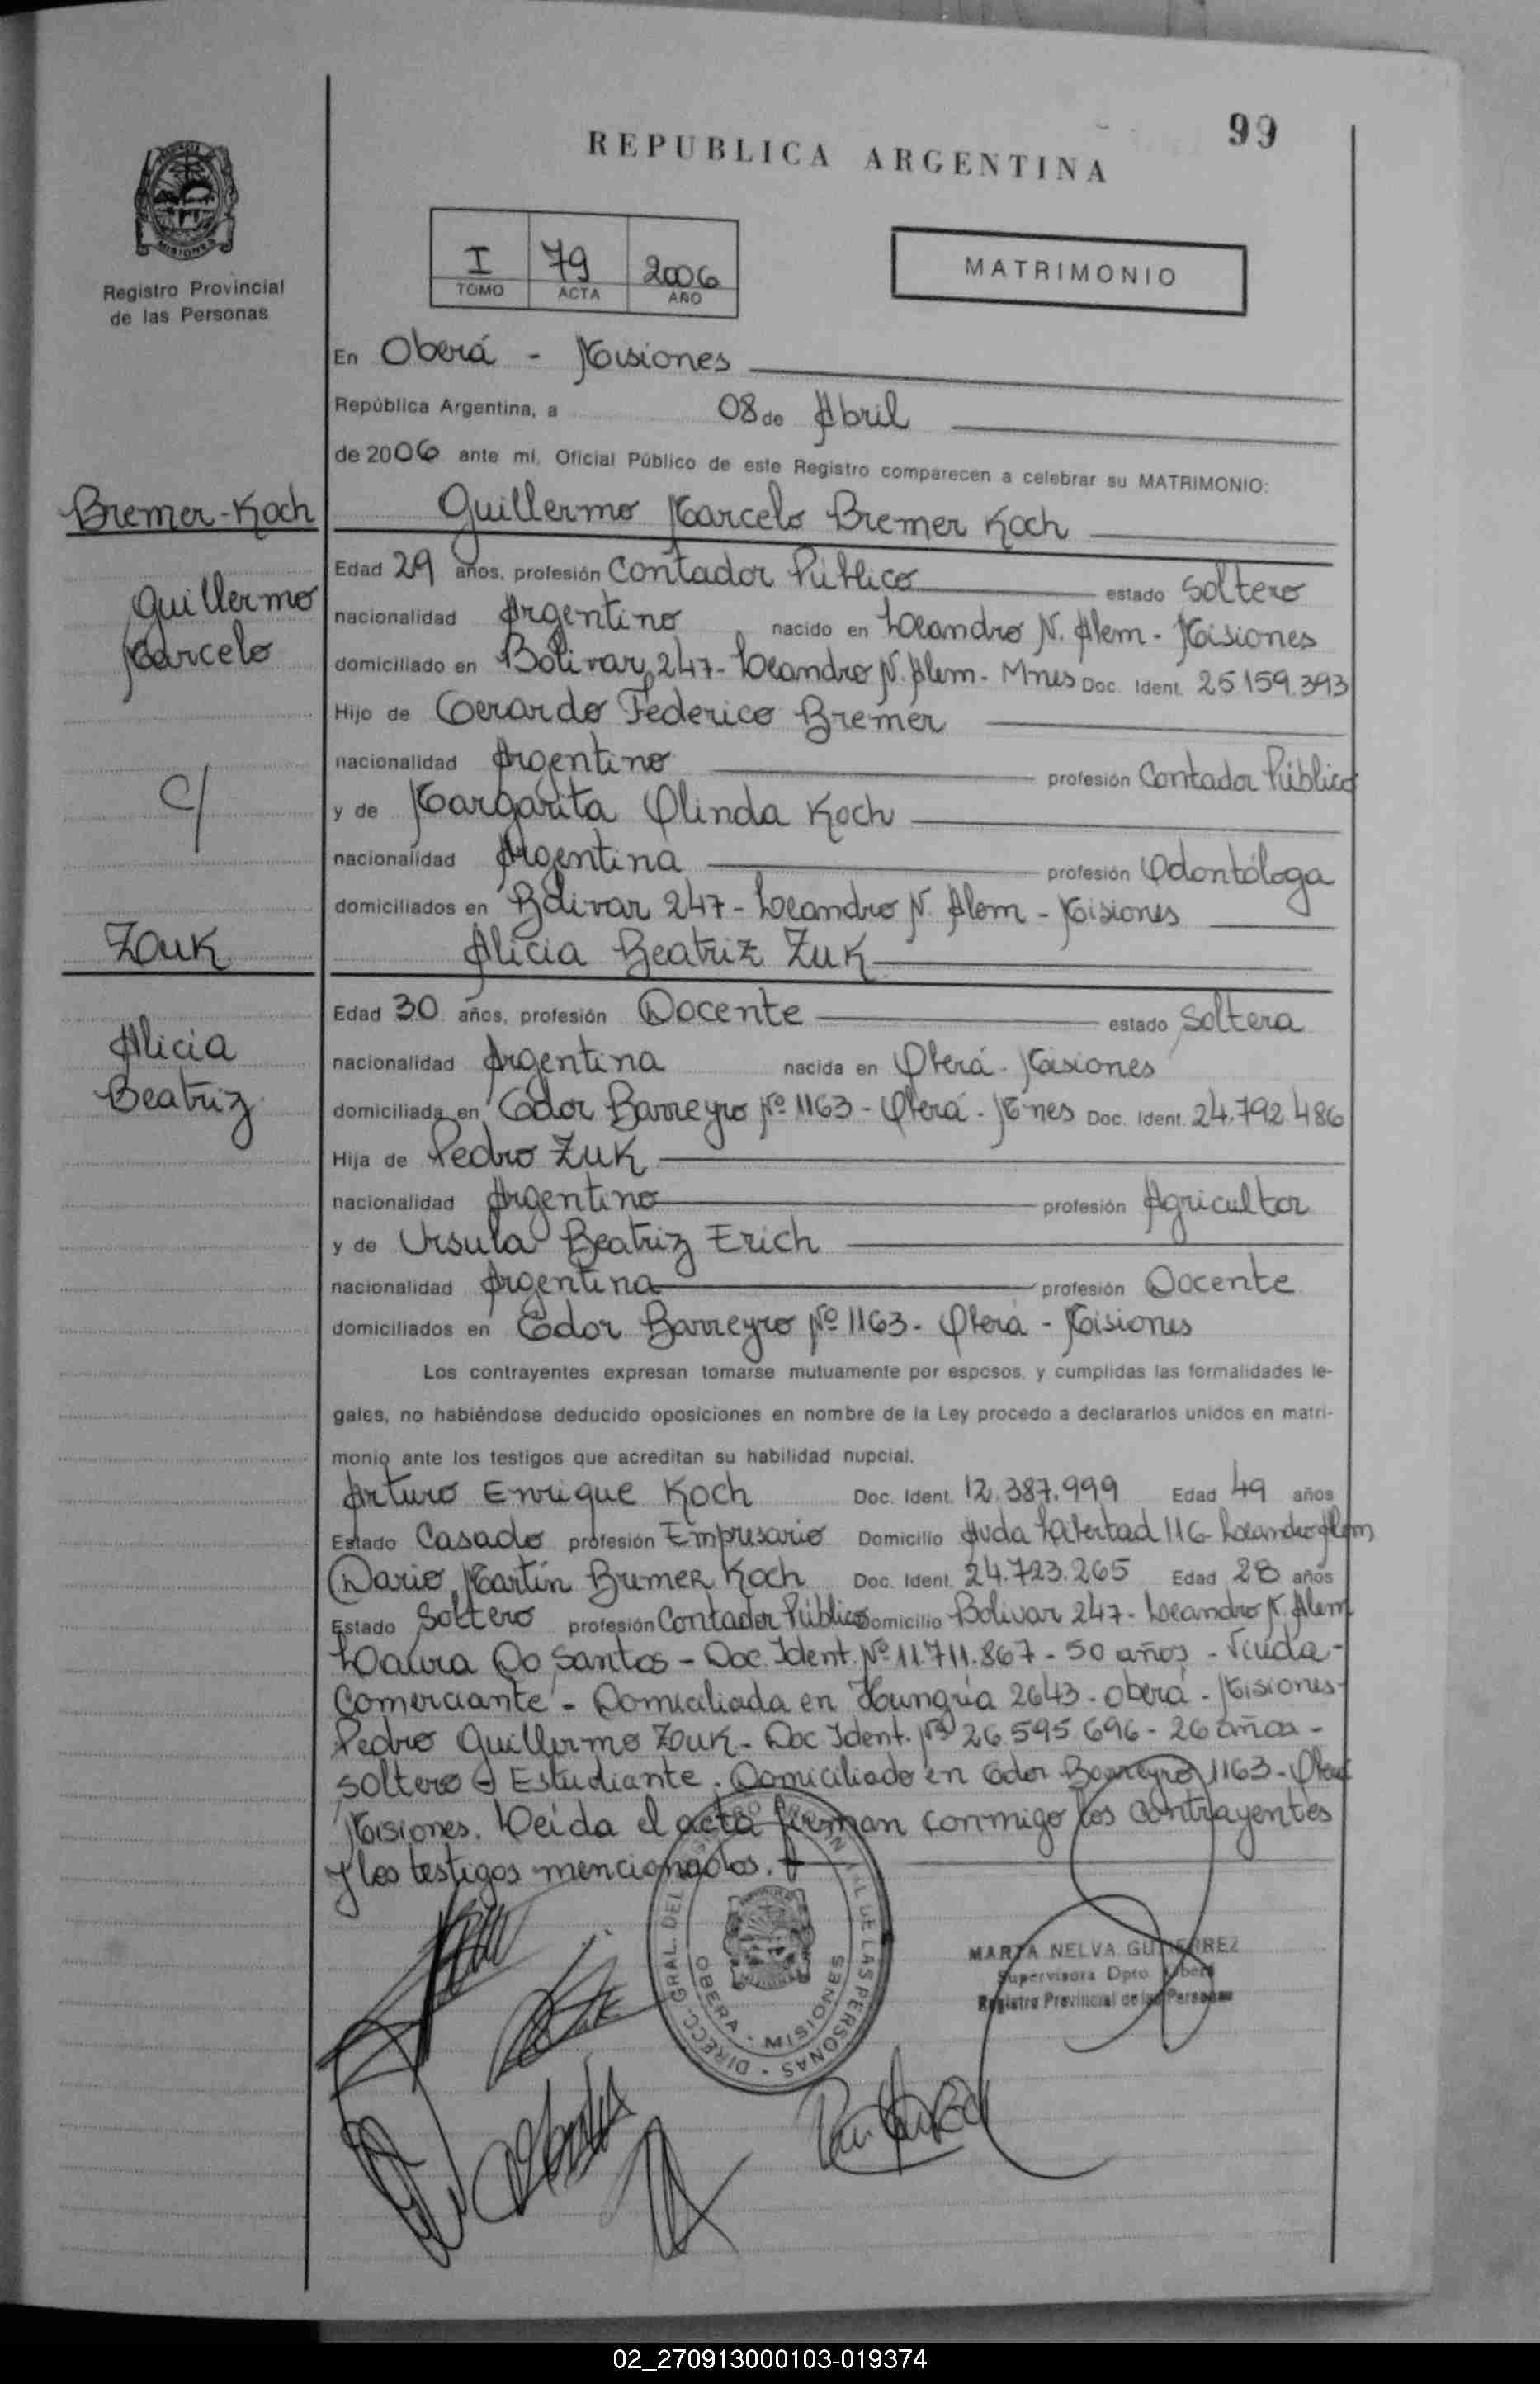 99
REPUBLICA ARGENTINA
MISIONES
Registro Provincial
de las Personas
I 79 2006
TOMO ACTA AÑO
MATRIMONIO
En Oberá - Misiones
República Argentina, a 08 de Abril
de 2006 ante mí, Oficial Público de este Registro comparecen a celebrar su MATRIMONIO:
Bremer-Koch
Guillermo Marcelo Bremer Koch
Edad 29 años, profesión Contador Público estado Soltero
Guillermo
Marcelo
nacionalidad Argentino nacido en Leandro N. Alem - Misiones
domiciliado en Bolivar 247 - Leandro N. Alem - Mnes Doc. Ident. 25.159.393
Hijo de Gerardo Federico Bremer
nacionalidad Argentino profesión Contador Público
c/
y de Margarita Olinda Koch
nacionalidad Argentina profesión Odontóloga
domiciliados en Bolivar 247 - Leandro N. Alem - Misiones
Zuk
Alicia Beatriz Zuk
Edad 30 años, profesión Docente estado Soltera
Alicia
Beatriz
nacionalidad Argentina nacida en Oberá - Misiones
domiciliada en Gdor Barreyro Nº 1163 - Oberá - Mnes Doc. Ident. 24.792.486
Hija de Pedro Zuk
nacionalidad Argentino profesión Agricultor
y de Ursula Beatriz Erich
nacionalidad Argentina profesión Docente
domiciliados en Gdor Barreyro Nº 1163 - Oberá - Misiones
Los contrayentes expresan tomarse mutuamente por esposos, y cumplidas las formalidades le-
gales, no habiéndose deducido oposiciones en nombre de la Ley procedo a declararlos unidos en matri-
monio ante los testigos que acreditan su habilidad nupcial.
Arturo Enrique Koch Doc. Ident. 12.387.999 Edad 49 años
Estado Casado profesión Empresario Domicilio Avda Libertad 116 - Leandro Alem
Dario Martín Bremer Koch Doc. Ident. 24.723.265 Edad 28 años
Estado Soltero profesión Contador Público Domicilio Bolivar 247 - Leandro N. Alem
Laura Do Santos - Doc. Ident. Nº 11.711.867 - 50 años - Viuda -
Comerciante - Domiciliada en Hungría 2643 - Oberá - Misiones -
Pedro Guillermo Zuk - Doc Ident. Nº 26.595.696 - 26 años -
Soltero - Estudiante. Domiciliado en Gdor Barreyro 1163 - Oberá
Misiones. Leída el acta firman conmigo los contrayentes
y los testigos mencionados.
DIRECC. GRAL. DEL REGISTRO PROVINCIAL DE LAS PERSONAS
OBERA - MISIONES
MARTA NELVA GUTIERREZ
Supervisora Dpto. Oberá
Registro Provincial de las Personas
02_270913000103-019374